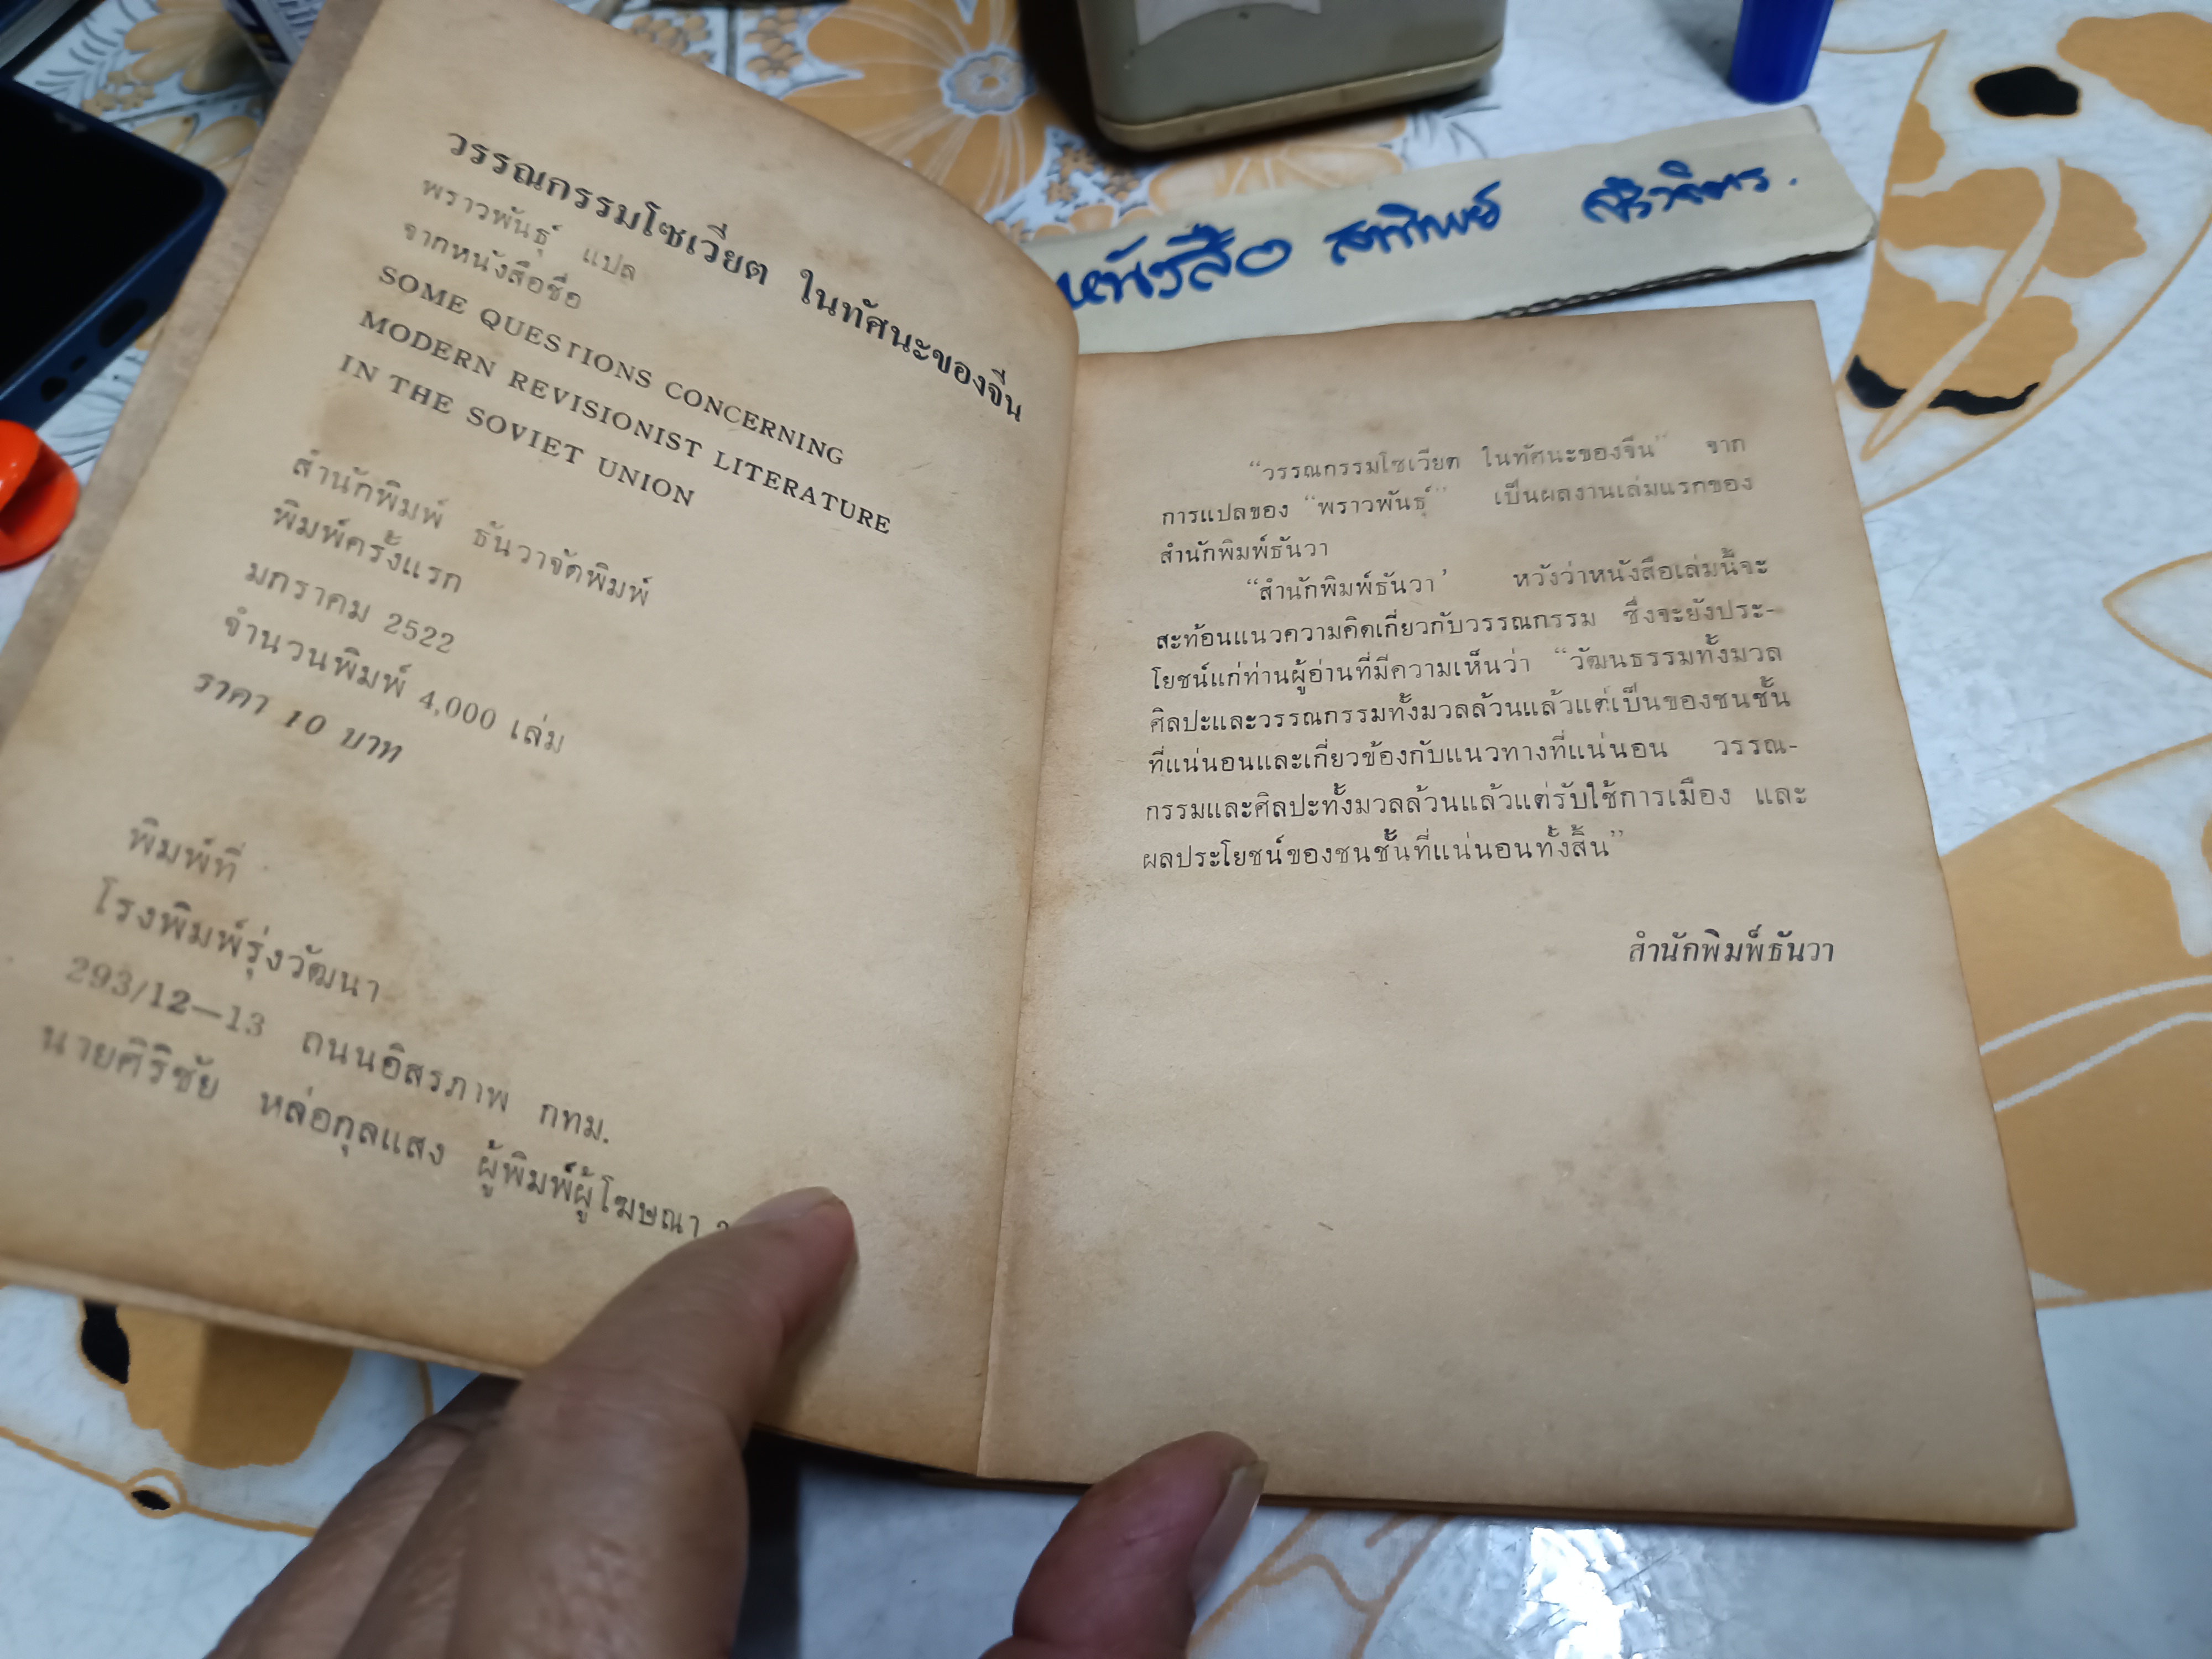 วรรณกรรมโซเวียต ในทัศนะของจีน
พราวพันธุ์ แปล
จากหนังสือชื่อ
SOME QUESTIONS CONCERNING
MODERN REVISIONIST LITERATURE
IN THE SOVIET UNION
สำนักพิมพ์ ธันวาจัดพิมพ์
พิมพ์ครั้งแรก
มกราคม 2522
จำนวนพิมพ์ 4,000 เล่ม
ราคา 10 บาท
พิมพ์ที่
โรงพิมพ์รุ่งวัฒนา
293/12—13 ถนนอิสรภาพ กทม.
นายศิริชัย หล่อกุลแสง ผู้พิมพ์ผู้โฆษณา
หนังสือ
“วรรณกรรมโซเวียต ในทัศนะของจีน” จาก
การแปลของ “พราวพันธุ์” เป็นผลงานเล่มแรกของ
สำนักพิมพ์ธันวา
“สำนักพิมพ์ธันวา’ หวังว่าหนังสือเล่มนี้จะ
สะท้อนแนวความคิดเกี่ยวกับวรรณกรรม ซึ่งจะยังประ-
โยชน์แก่ท่านผู้อ่านที่มีความเห็นว่า “วัฒนธรรมทั้งมวล
ศิลปะและวรรณกรรมทั้งมวลล้วนแล้วแต่เป็นของชนชั้น
ที่แน่นอนและเกี่ยวข้องกับแนวทางที่แน่นอน วรรณ-
กรรมและศิลปะทั้งมวลล้วนแล้วแต่รับใช้การเมือง และ
ผลประโยชน์ของชนชั้นที่แน่นอนทั้งสิ้น”
สำนักพิมพ์ธันวา